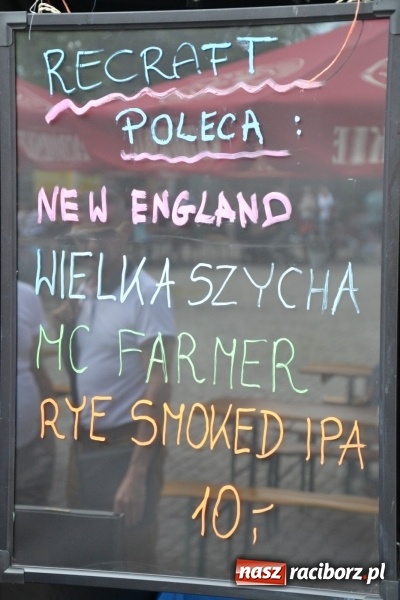 RECRAFT
POLECA :
NEW ENGLAND
WIELKA SZYCHA
MC FARMER
RYE SMOKED IPA
10,-
nasz raciborz.pl